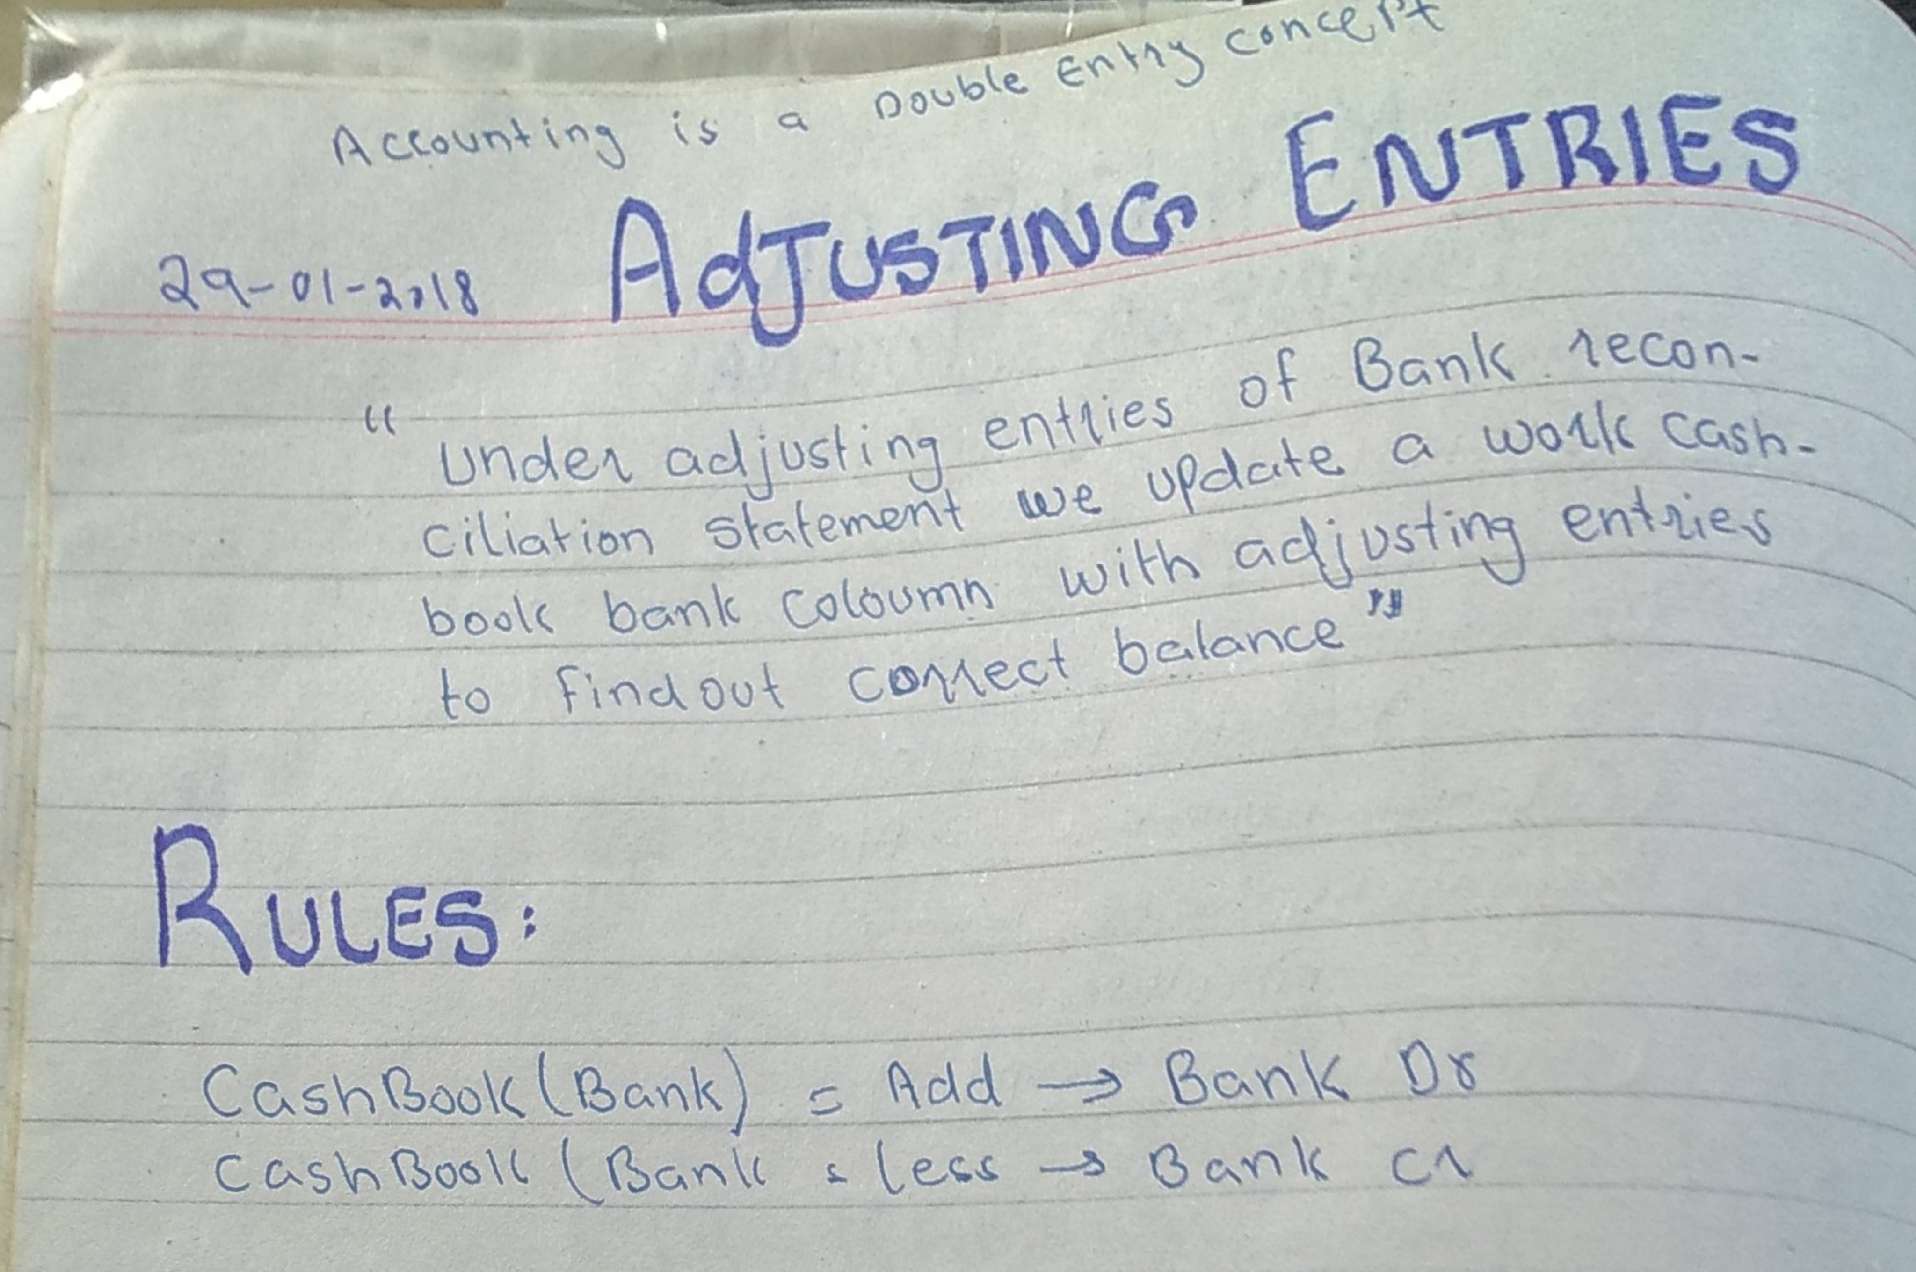 Accounting is a Double Entry concept
ADJUSTING ENTRIES
29-01-2018
" Under adjusting entries of Bank recon-
ciliation statement we update a work cash-
book bank coloumn with adjusting entries
to findout correct balance "
RULES:
CashBook (Bank) = Add → Bank Dr
CashBook (Bank = less → Bank cr